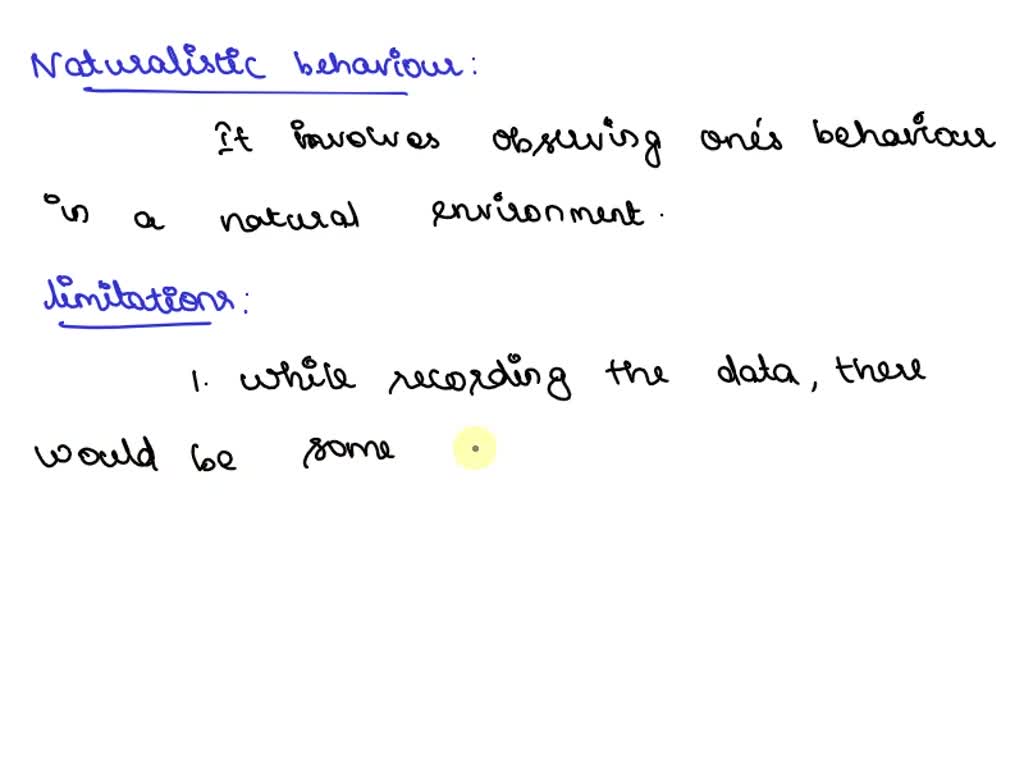 Naturalistic behaviour:
It involves observing one's behaviour
in a natural environment.
limitations:
1. while recording the data, there
would be some